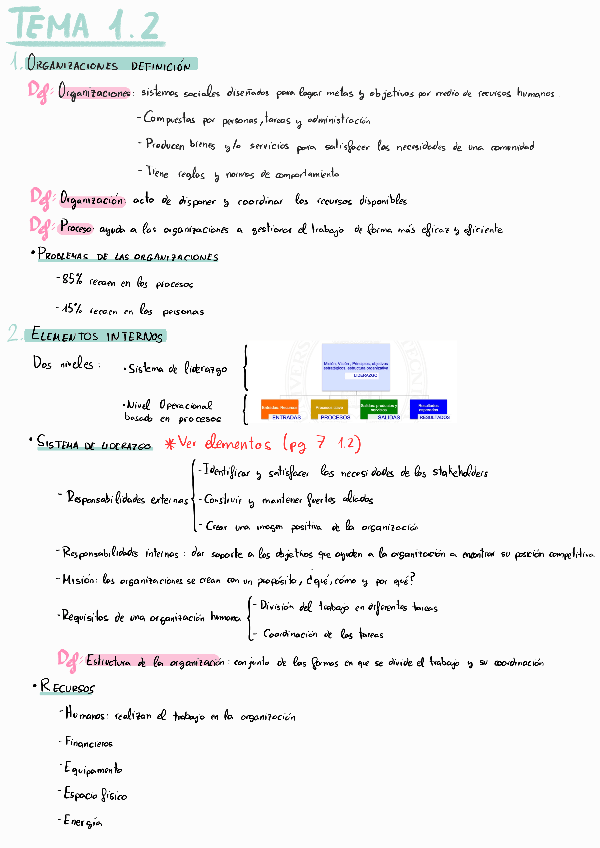 TEMA 1.2
1. ORGANIZACIONES DEFINICIÓN
Def: Organizaciones: sistemas sociales diseñados para lograr metas y objetivos por medio de recursos humanos
- Compuestas por personas, tareas y administración
- Producen bienes y/o servicios para satisfacer las necesidades de una comunidad
- Tiene reglas y normas de comportamiento
Def: Organización: acto de disponer y coordinar los recursos disponibles
Def: Proceso: ayuda a las organizaciones a gestionar el trabajo de forma más eficaz y eficiente
• PROBLEMAS DE LAS ORGANIZACIONES
- 85% recaen en los procesos
- 15% recaen en las personas
2. ELEMENTOS INTERNOS
Dos niveles:
• Sistema de liderazgo
• Nivel Operacional
basado en procesos
Misión, Visión, Principios, objetivos
estratégicos, estructura organizativa
LIDERAZGO
Entradas, Recursos
ENTRADAS
PROCESOS
Salidas: productos y
servicios
SALIDAS
Resultados
esperados
RESULTADOS
• SISTEMA DE LIDERAZGO * Ver elementos (pg 7 1.2)
- Responsabilidades externas
- Identificar y satisfacer las necesidades de los stakeholders
- Construir y mantener fuertes aliados
- Crear una imagen positiva de la organización
- Responsabilidades internas: dar soporte a los objetivos que ayuden a la organización a encontrar su posición competitiva.
- Misión: las organizaciones se crean con un propósito, ¿qué, cómo y por qué?
- Requisitos de una organización humana
- División del trabajo en diferentes tareas
- Coordinación de las tareas
Def: Estructura de la organización: conjunto de las formas en que se divide el trabajo y su coordinación
• RECURSOS
- Humanos: realizan el trabajo en la organización
- Financieros
- Equipamento
- Espacio físico
- Energía